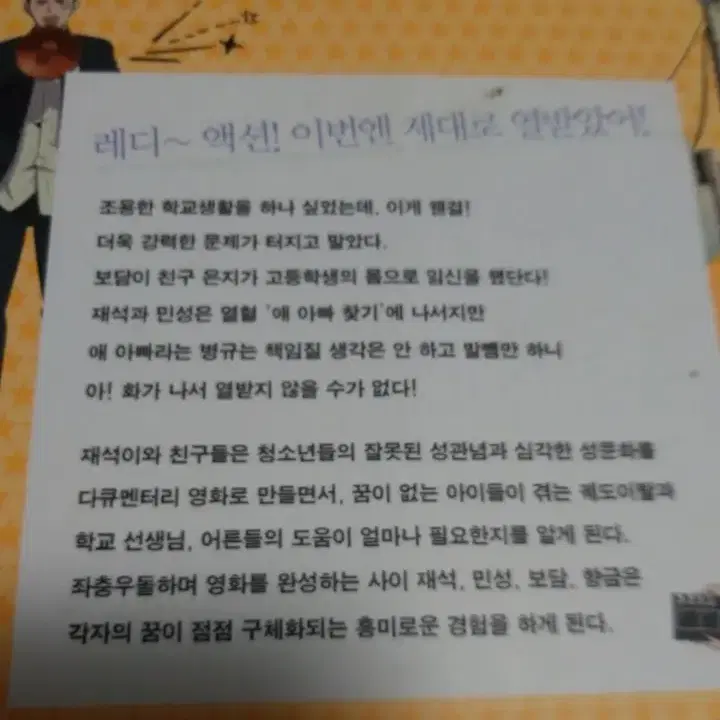 레디~ 액션! 이번엔 제대로 열받았어!
조용한 학교생활을 하나 싶었는데, 이게 웬걸!
더욱 강력한 문제가 터지고 말았다.
보담이 친구 은지가 고등학생의 몸으로 임신을 했단다!
재석과 민성은 열혈 '애 아빠 찾기'에 나서지만
애 아빠라는 병규는 책임질 생각은 안 하고 말뺌만 하니
아! 화가 나서 열받지 않을 수가 없다!
재석이와 친구들은 청소년들의 잘못된 성관념과 심각한 성문화를
다큐멘터리 영화로 만들면서, 꿈이 없는 아이들이 겪는 궤도이탈과
학교 선생님, 어른들의 도움이 얼마나 필요한지를 알게 된다.
좌충우돌하며 영화를 완성하는 사이 재석, 민성, 보담, 향금은
각자의 꿈이 점점 구체화되는 흥미로운 경험을 하게 된다.